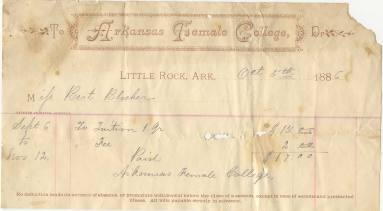 To Arkansas Female College, Dr.
LITTLE ROCK, ARK. Oct 5th 1886
Miss Bert Blocher
Sept 6 To Tuition 1 Qr $ 15.00
to Fee 2.00
Nov 12. Paid $17.00
Arkansas Female College
No deduction made on account of absence, or premature withdrawal before the close of a session, except in case of protracted
illness. All bills payable strictly in advance.